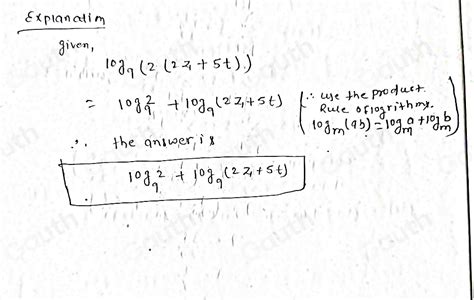 Explanation
given,
log₉(2(2z+5t))
= log₉2 + log₉(2z+5t) (∵ use the product
Rule of logrithms.
logₘ(ab) = logₘa + logₘb)
∴ the answer, is
log₉2 + log₉(2z+5t)